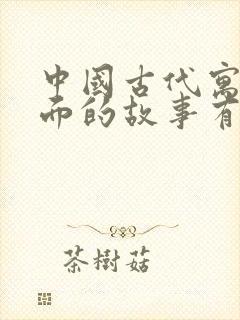 中國古代寓
而的故事有
茶樹菇